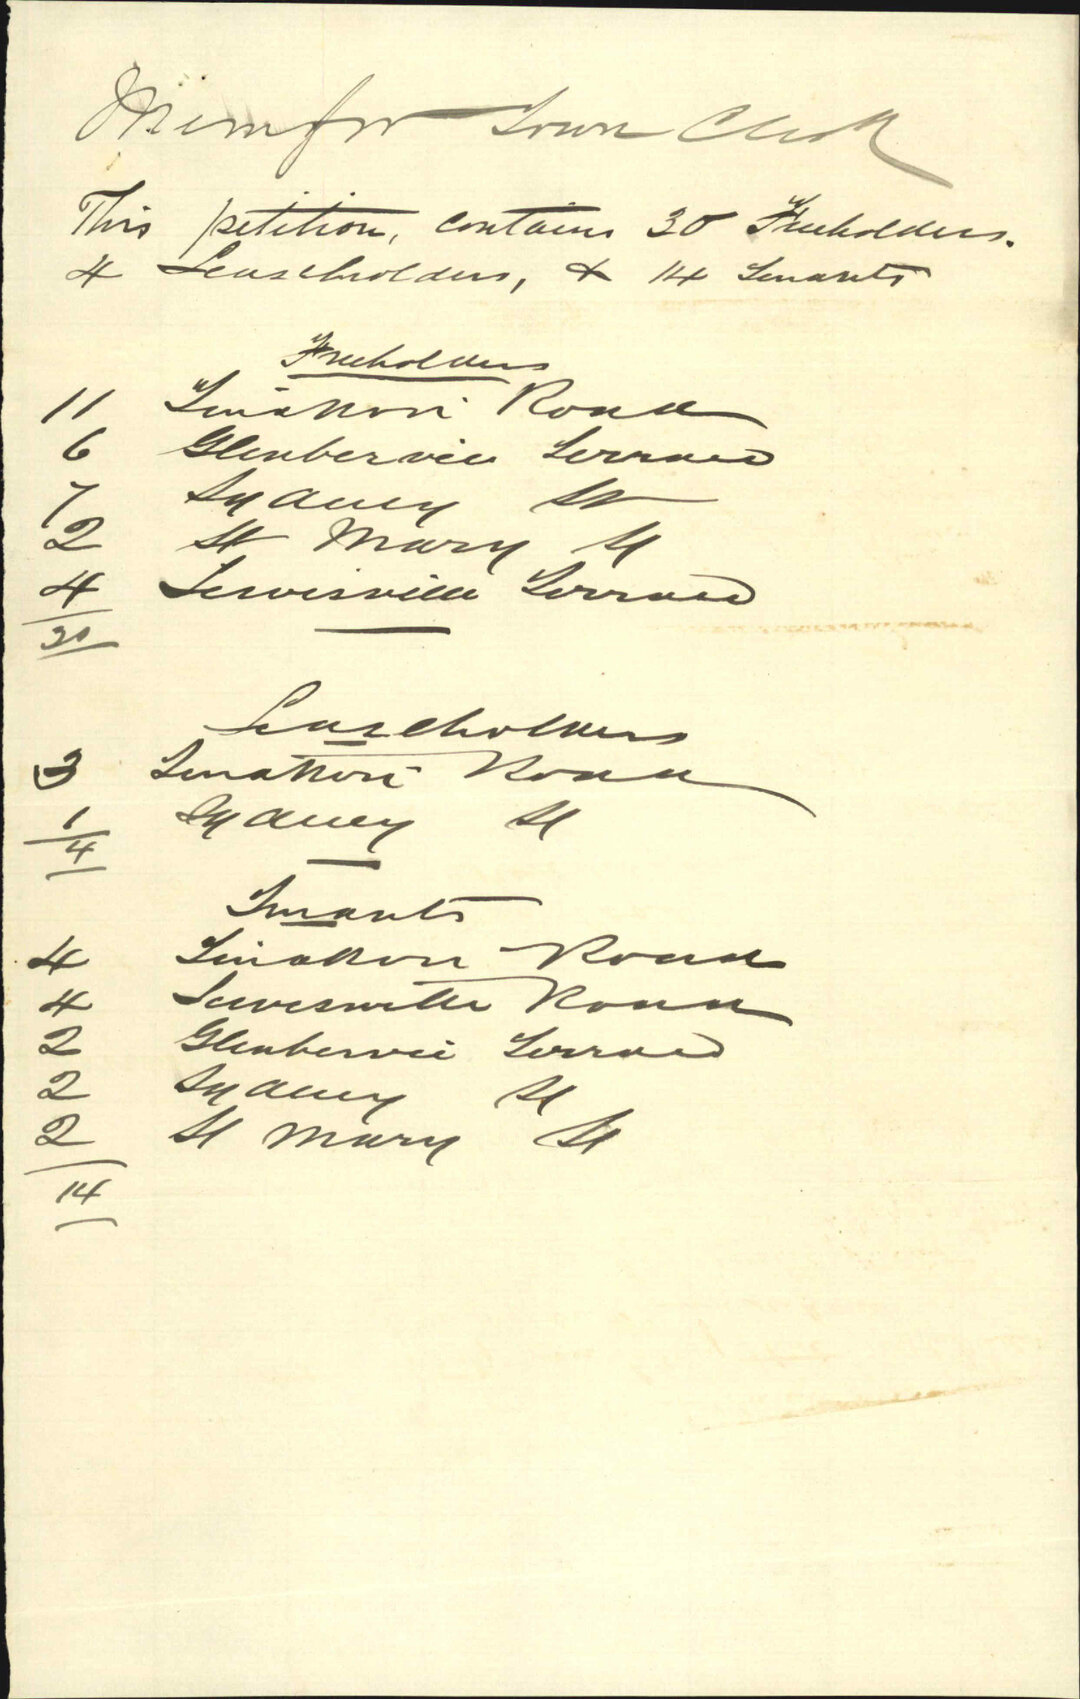 Mem for Town Clerk
This petition, contains 30 Freeholders.
4 Leaseholders, & 14 Tenants
Freeholders
11 Tinakori Road
6 Glenbervie Terrace
7 Sydney St
2 St Mary St
4 Lewisville Terrace
30
Leaseholders
3 Tinakori Road
1 Sydney St
4
Tenants
4 Tinakori Road
4 Lewisville Road
2 Glenbervie Terrace
2 Sydney St
2 St Mary St
14